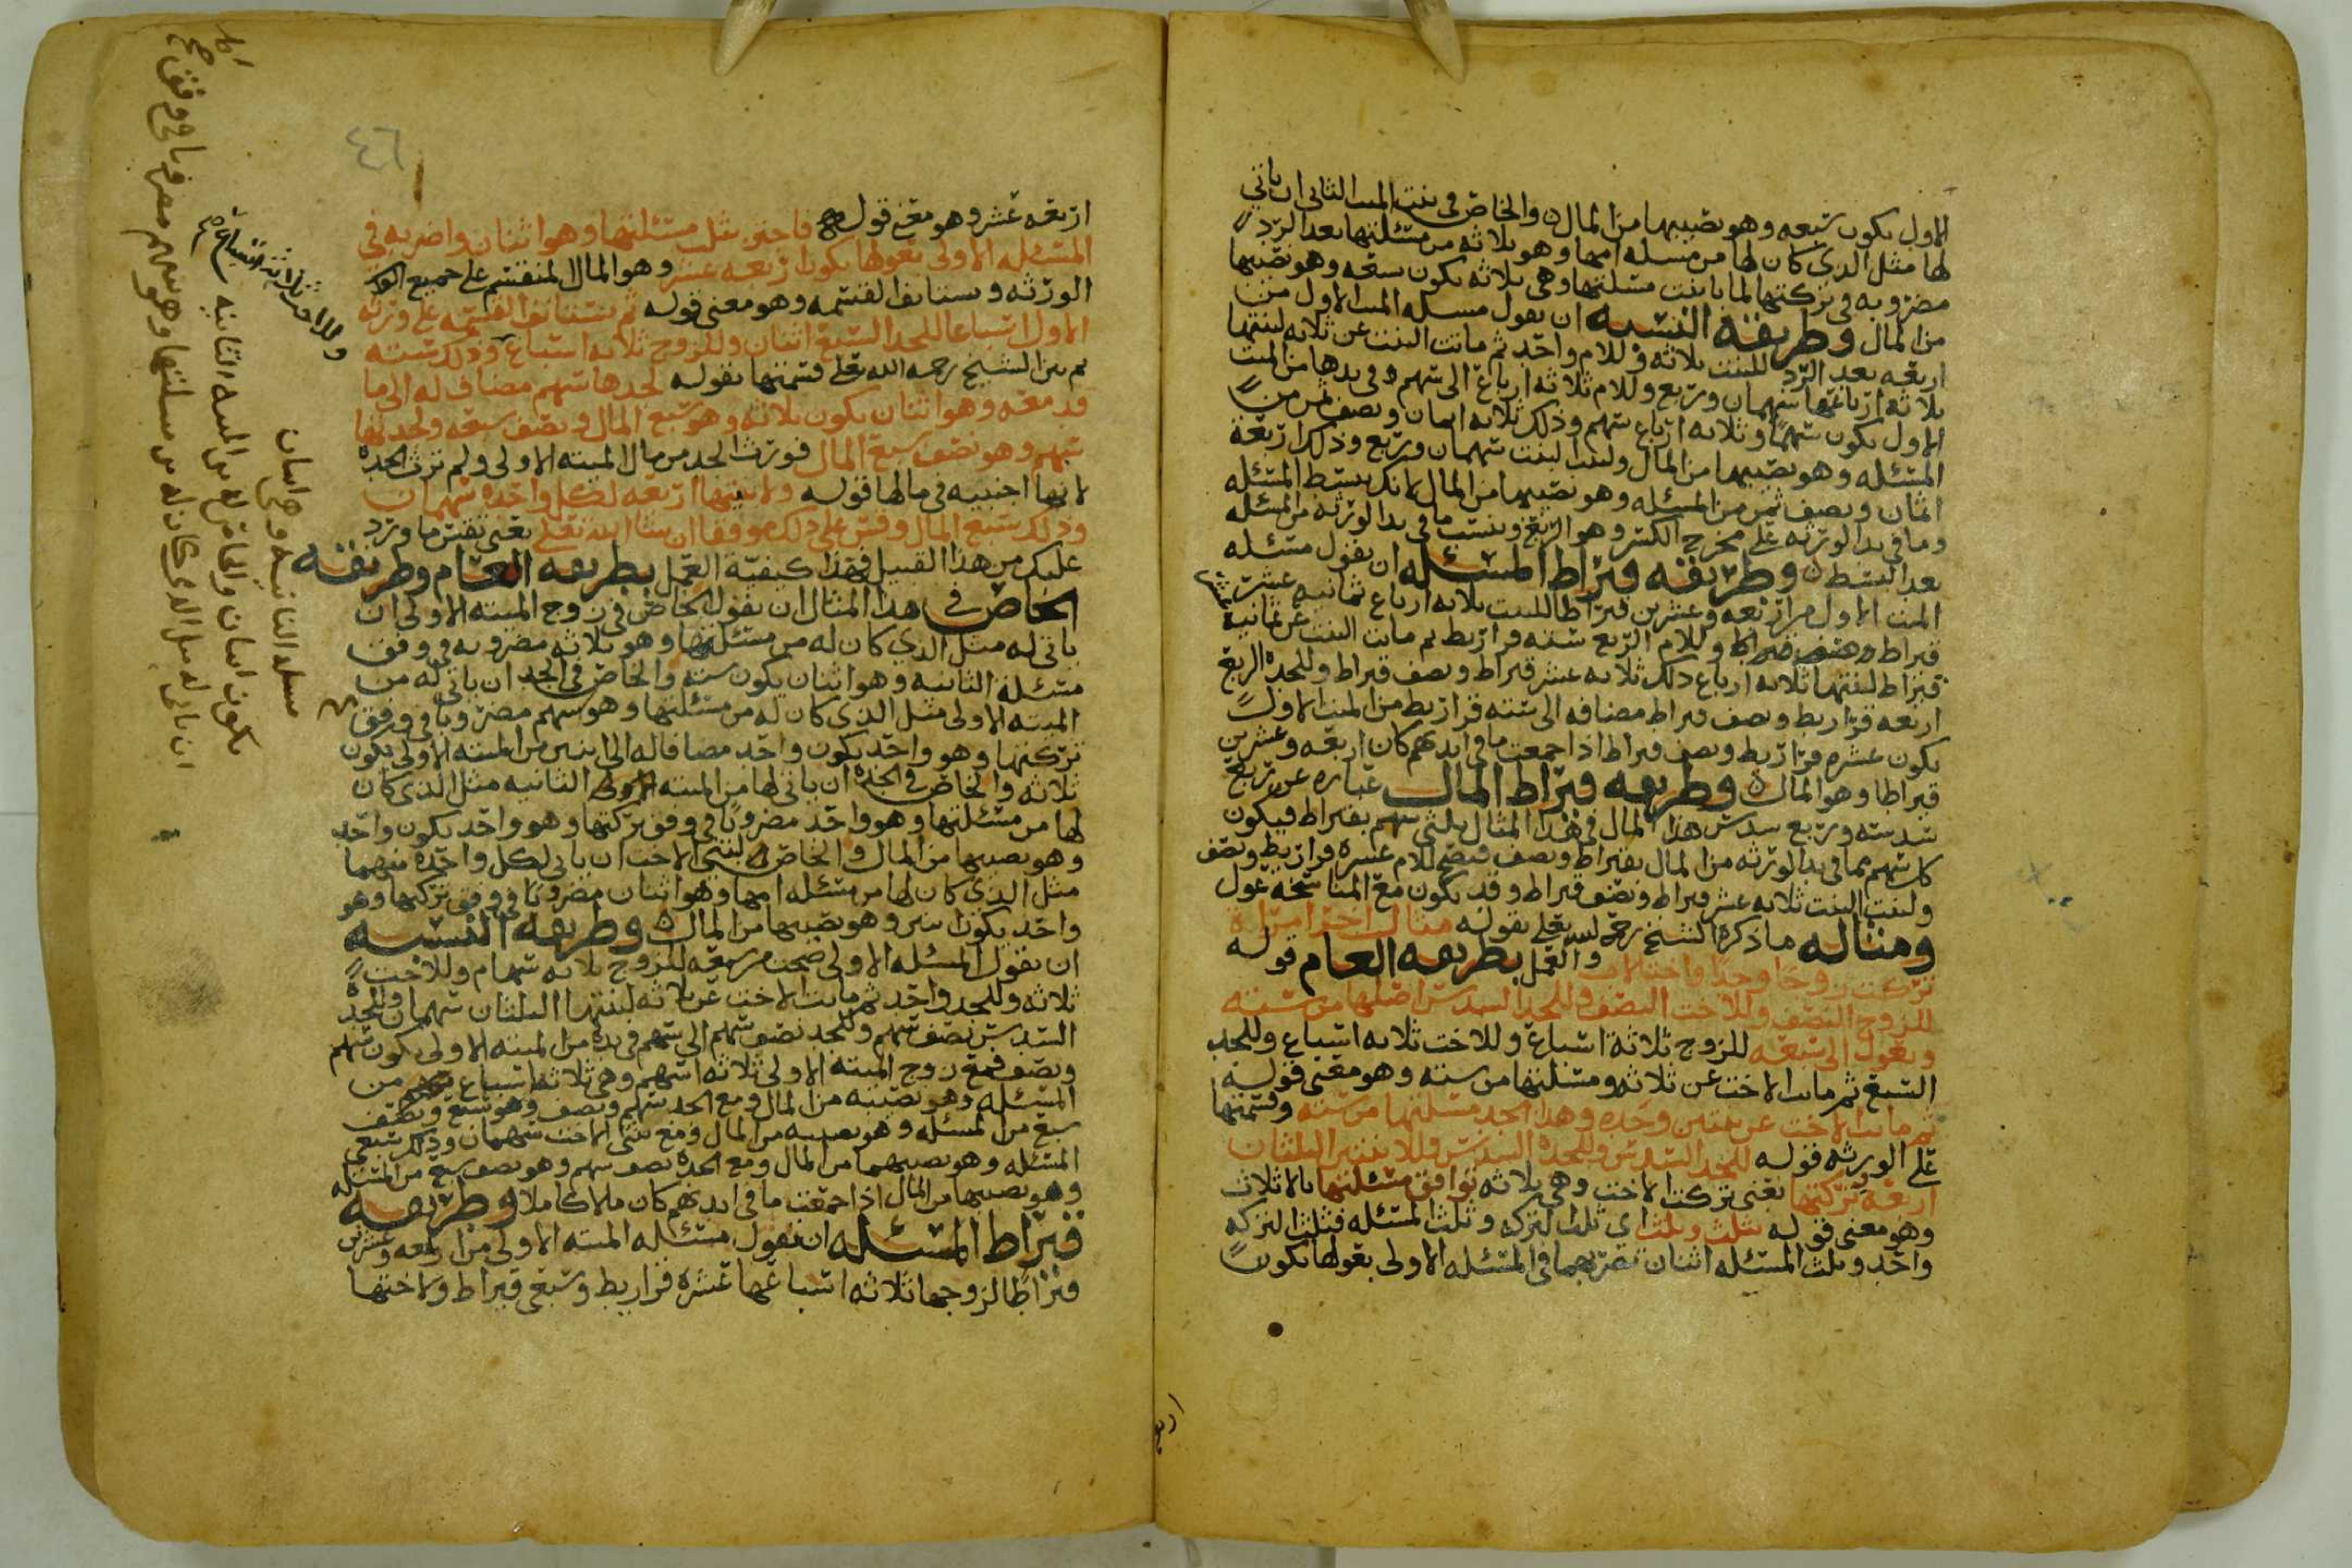 الاول يكون تسعه وهو نصيبها من المال والخاص في بنت الميت الثاني ان ياتي
لها مثل الذي كان لها من مسله امها وهو ثلاثه من مسئلتها بعد الرد
مضروبه في تركتها لما باينت مسئلتها وهي ثلاثه يكون تسعه وهو نصيبها
من المال وطريقة النسبه ان يقول مسله الميت الاول من
اربعه بعد الرد للبنت ثلاثه وللام واحد ثم ماتت البنت عن ثلاثه لبنتها
ثلاثه ارباعها سهمان وربع وللام ثلاثه ارباع الى سهم في يدها من الميت
الاول يكون سهما وثلاثه ارباع سهم وذلك ثلاثه اثمان ونصف ثمن من
المسئله وهو نصيبها من المال ولبنت البنت سهمان وربع وذلك اربعة
اثمان ونصف ثمن من المسئله وهو نصيبها من المال لانك بسط المسئله
وما في يد الورثه على مخرج الكسر وهو الربع ونسبت ما في يد الورثه من المسئله
بعد البسط وطريقه قيراط المسئله ان يقول مسئله
الميت الاول من اربعه وعشرين قيراطا للبنت ثلاثه ارباع ثمانيه عشر
قيراط وللام الربع سته قراريط ثم ماتت البنت عن ثمانية
قيراط لبنتها ثلاثه ارباع ذلك ثلاثه عشر قيراط ونصف قيراط وللجده الربع
اربعه قراريط ونصف قيراط مضافه الى سته قراريط من الميت الاول
يكون عشره قراريط ونصف قيراط اذا جمعت ما في ايديهم كان اربعه وعشرين
قيراطا وهو المال وطريقه قيراط المال عباره عن ربع
سدسه وربع سدس هذا المال في هذا المثال ثلثي سهم بقيراط فيكون
كل سهم مما في يد الورثه من المال بقيراط ونصف فيصح للام عشره قراريط ونصف
ولبنت البنت ثلاثه عشر قيراط ونصف قيراط وقد يكون مع المناسخه عول
ومثاله ما ذكره الشيخ رحمه الله تعلى بقوله مثال اخر امراة
تركت زوجا وجدا واختا لاب والعمل بطريقه العام قوله
للزوج النصف وللاخت النصف وللجد السدس اصلها من سته
وتعول الى سبعه للزوج ثلاثة اسباع وللاخت ثلاثه اسباع وللجد
السبع ثم ماتت الاخت عن ثلاثه ومسئلتها من سته وهو معنى قوله
ثم ماتت الاخت عن بنتين وجده وهذا الجد مسئلتها من سته وقسمتها
على الورثه قوله للجد السدس وللجدة السدس وللابنتين الثلثان
اربعة تركتها يعني تركت الاخت وهي ثلاثه توافق مسئلتها بالاثلاث
وهو معنى قوله بثلث وثلث اي ثلث التركه وثلث المسئله فثلث التركه
واحد وثلث المسئله اثنان تضربهما في المسئله الاولى بعولها يكون
اربعه عشر وهو معنى قوله فاجتزي بثلث مسئلتها وهو اثنان واضربه في
المسئله الاولى بعولها يكون اربعه عشر وهو المال المنقسم على جميع
الورثه ويستانف القسمه وهو معنى قوله ثم تستانف القسمه على ورثه
الاول اسباعا للجد السبع اثنان وللزوج ثلاثه اسباع وذلك سته
ثم بين الشيخ رحمه الله تعلى قسمتها بقوله لجدها سهم مضاف له الى ما
قد معه وهو اثنان يكون ثلاثه وهو سبع المال ونصف سبعه ولجدتها
سهم وهو نصف سبع المال فورث الجد من مال الميته الاولى ولم ترث الجده
لانها اجنبيه في مالها قوله ولابنتيها اربعه لكل واحده سهمان
وذلك سبع المال وقس على ذلك موفقا ان شا الله تعلى يعني تقس ما ورد
عليك من هذا القبيل فهذا كيفيه العمل بطريقه العام وطريقه
الخاص في هذا المثال ان يقول الخاص في زوج الميته الاولى ان
ياتي له مثل الذي كان له من مسئلتها وهو ثلاثه مضروبه في وفق
مسئلة الثانيه وهو اثنان يكون سته والخاص في الجد ان ياتي له من
الميته الاولى مثل الذي كان له من مسئلتها وهو سهم مضروبا في وفق
تركتها وهو واحد يكون واحد مضافا له الى اثنين من الميته الاولى يكون
ثلاثه والخاص في الجده ان ياتي لها من الميته الثانيه مثل الذي كان
لها من مسئلتها وهو واحد مضروبا في وفق تركتها وهو واحد يكون واحد
وهو نصيبها من المال والخاص في ابنتي الاخت ان ياتي لكل واحده منهما
مثل الذي كان لها من مسئله امها وهو اثنان مضروبا في وفق تركتها وهو
واحد يكون اثنين وهو نصيبها من المال وطريقه النسبه
ان يقول المسئله الاولى صحت من سبعه للزوج ثلاثه سهام وللاخت
ثلاثه وللجد واحد ثم ماتت الاخت عن ثلاثه لبنتيها الثلثان سهمان وللجده
السدس نصف سهم وللجد نصف سهم الى سهم في يده من الميته الاولى يكون سهم
ونصف فمع زوج الميته الاولى ثلاثه اسهم وهي ثلاثه اسباع من
المسئله وهو نصيبه من المال ومع الجد سهم ونصف وهو سبع ونصف
سبع من المسئله وهو نصيبه من المال ومع بنتي الاخت سهمان وذلك سبعي
المسئله وهو نصيبهما من المال ومع الجده نصف سهم وهو نصف سبع من المسئله
وهو نصيبها من المال اذا جمعت ما في ايديهم كان مالا كاملا وطريقه
قيراط المسئله ان يقول مسئله الميته الاولى من اربعه وعشرين
قيراطا لزوجها ثلاثه اسباعها عشره قراريط وسبعي قيراط ولاختها
٤٦
وللاخت ثلاثه اسباع صح
مسله الثانيه وهي اثنان
يكون اثنان والخاص له من الميته الثانيه
ان ياتي له مثل الذي كان له من مسئلتها وهو سهم مضروبا في وفق